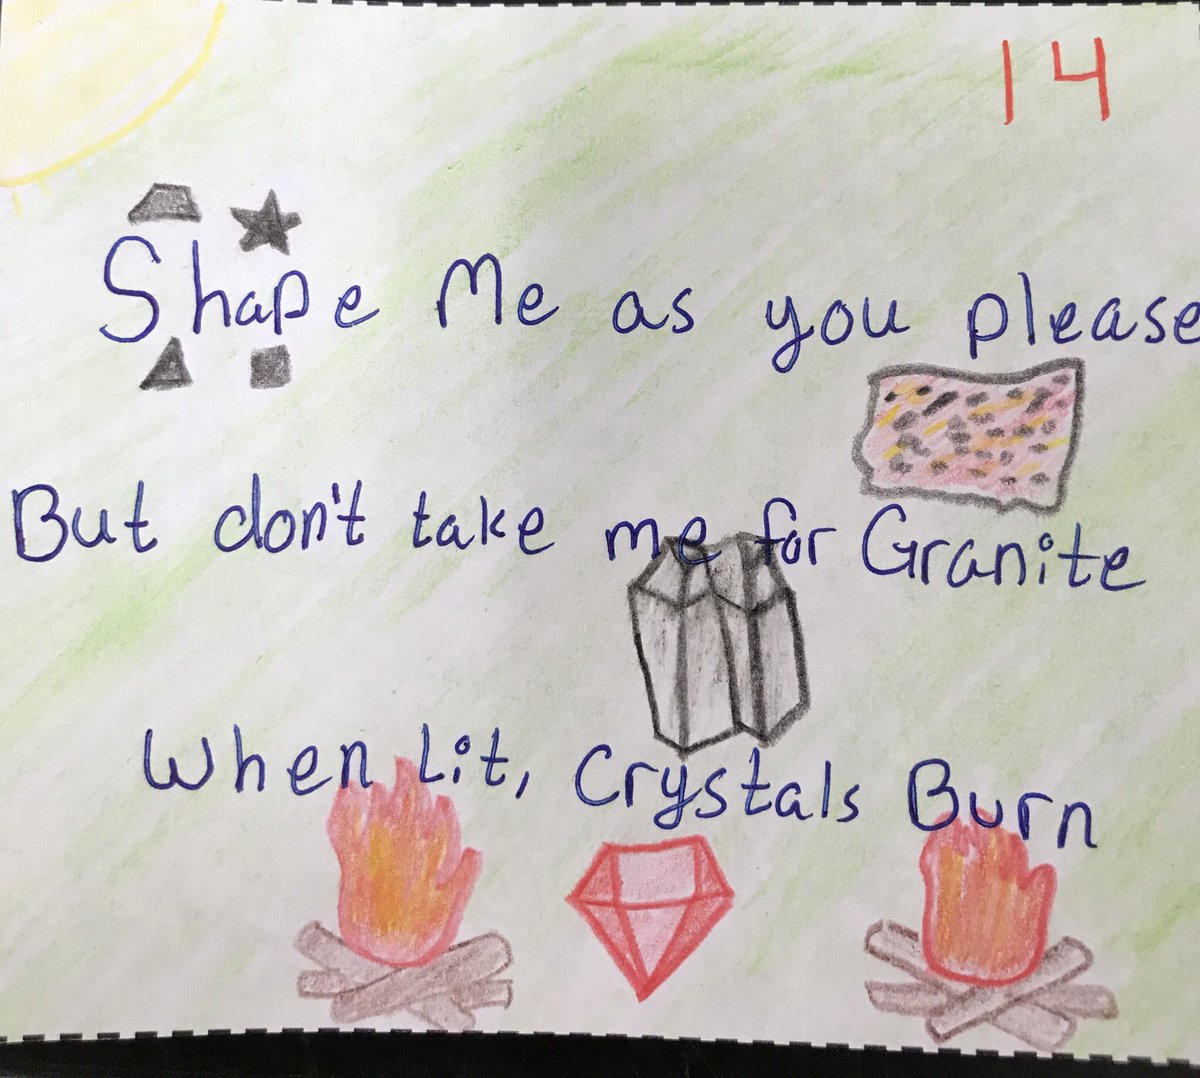 14
Shape Me as you please
But don't take me for Granite
When Lit, Crystals Burn